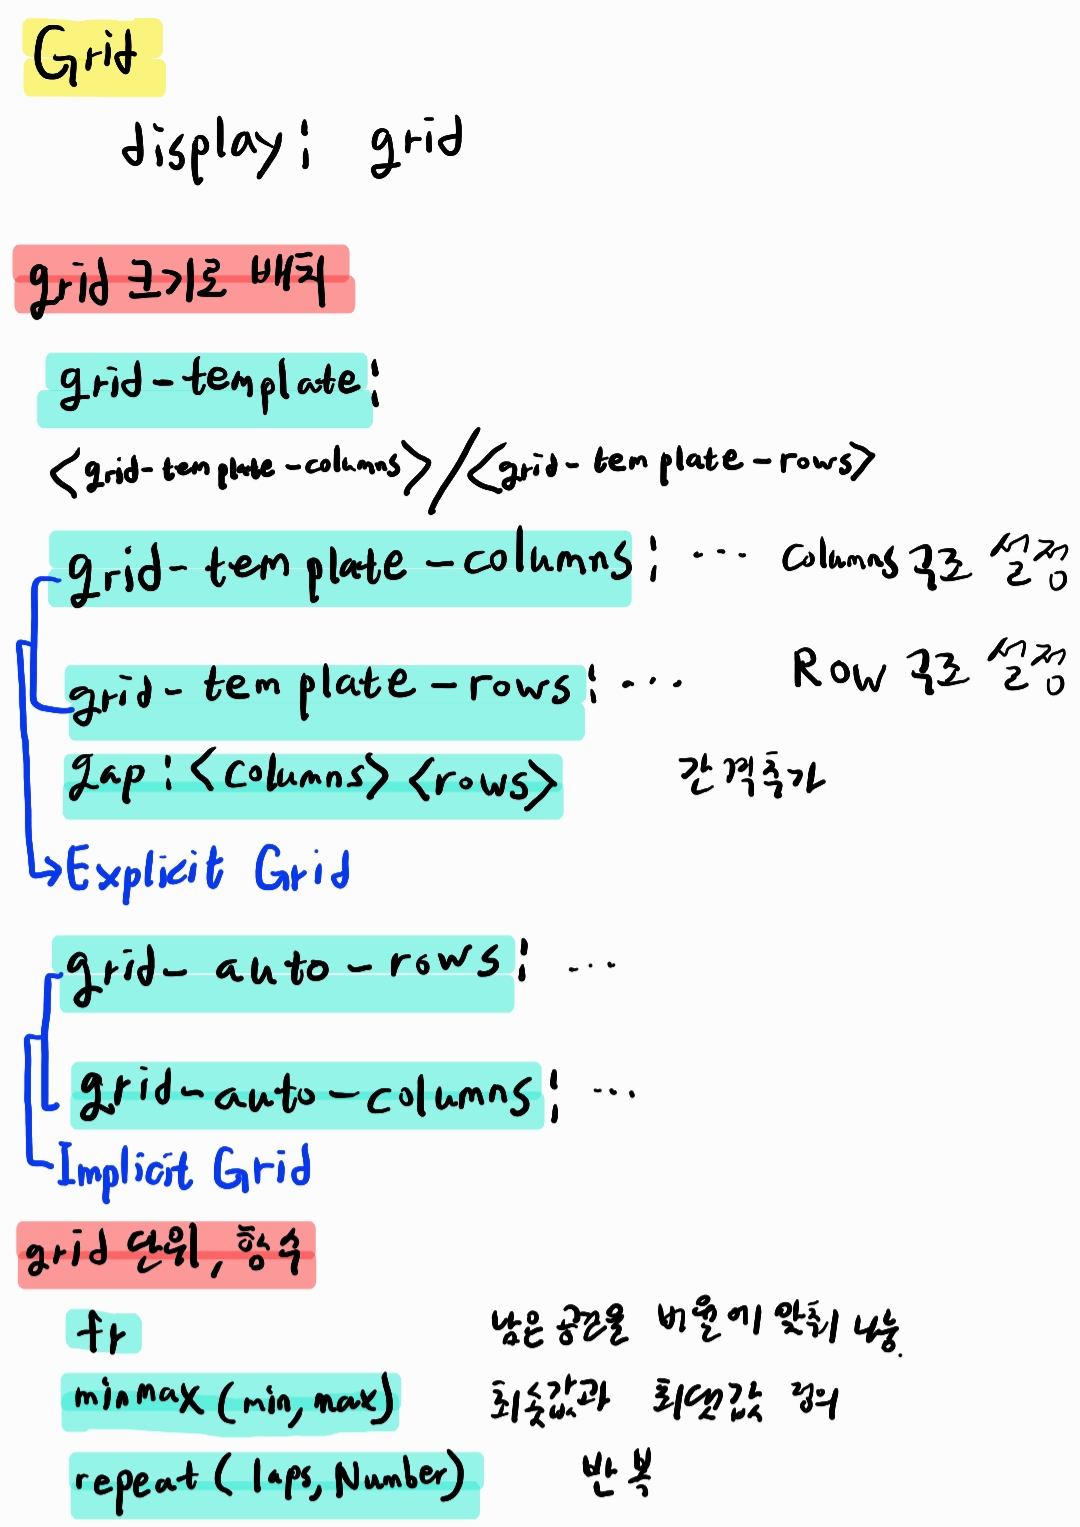 Grid
display: grid
grid 크기로 배치
grid-template:
<grid-template-columns>/<grid-template-rows>
grid-template-columns: ... Columns 구조 설정
grid-template-rows: ... Row 구조 설정
gap: <columns> <rows> 간격추가
Explicit Grid
grid-auto-rows: ...
grid-auto-columns: ...
Implicit Grid
grid 단위, 함수
fr 남은 공간을 비율에 맞춰 나눔.
minmax (min, max) 최솟값과 최댓값 정의
repeat ( laps, Number) 반복